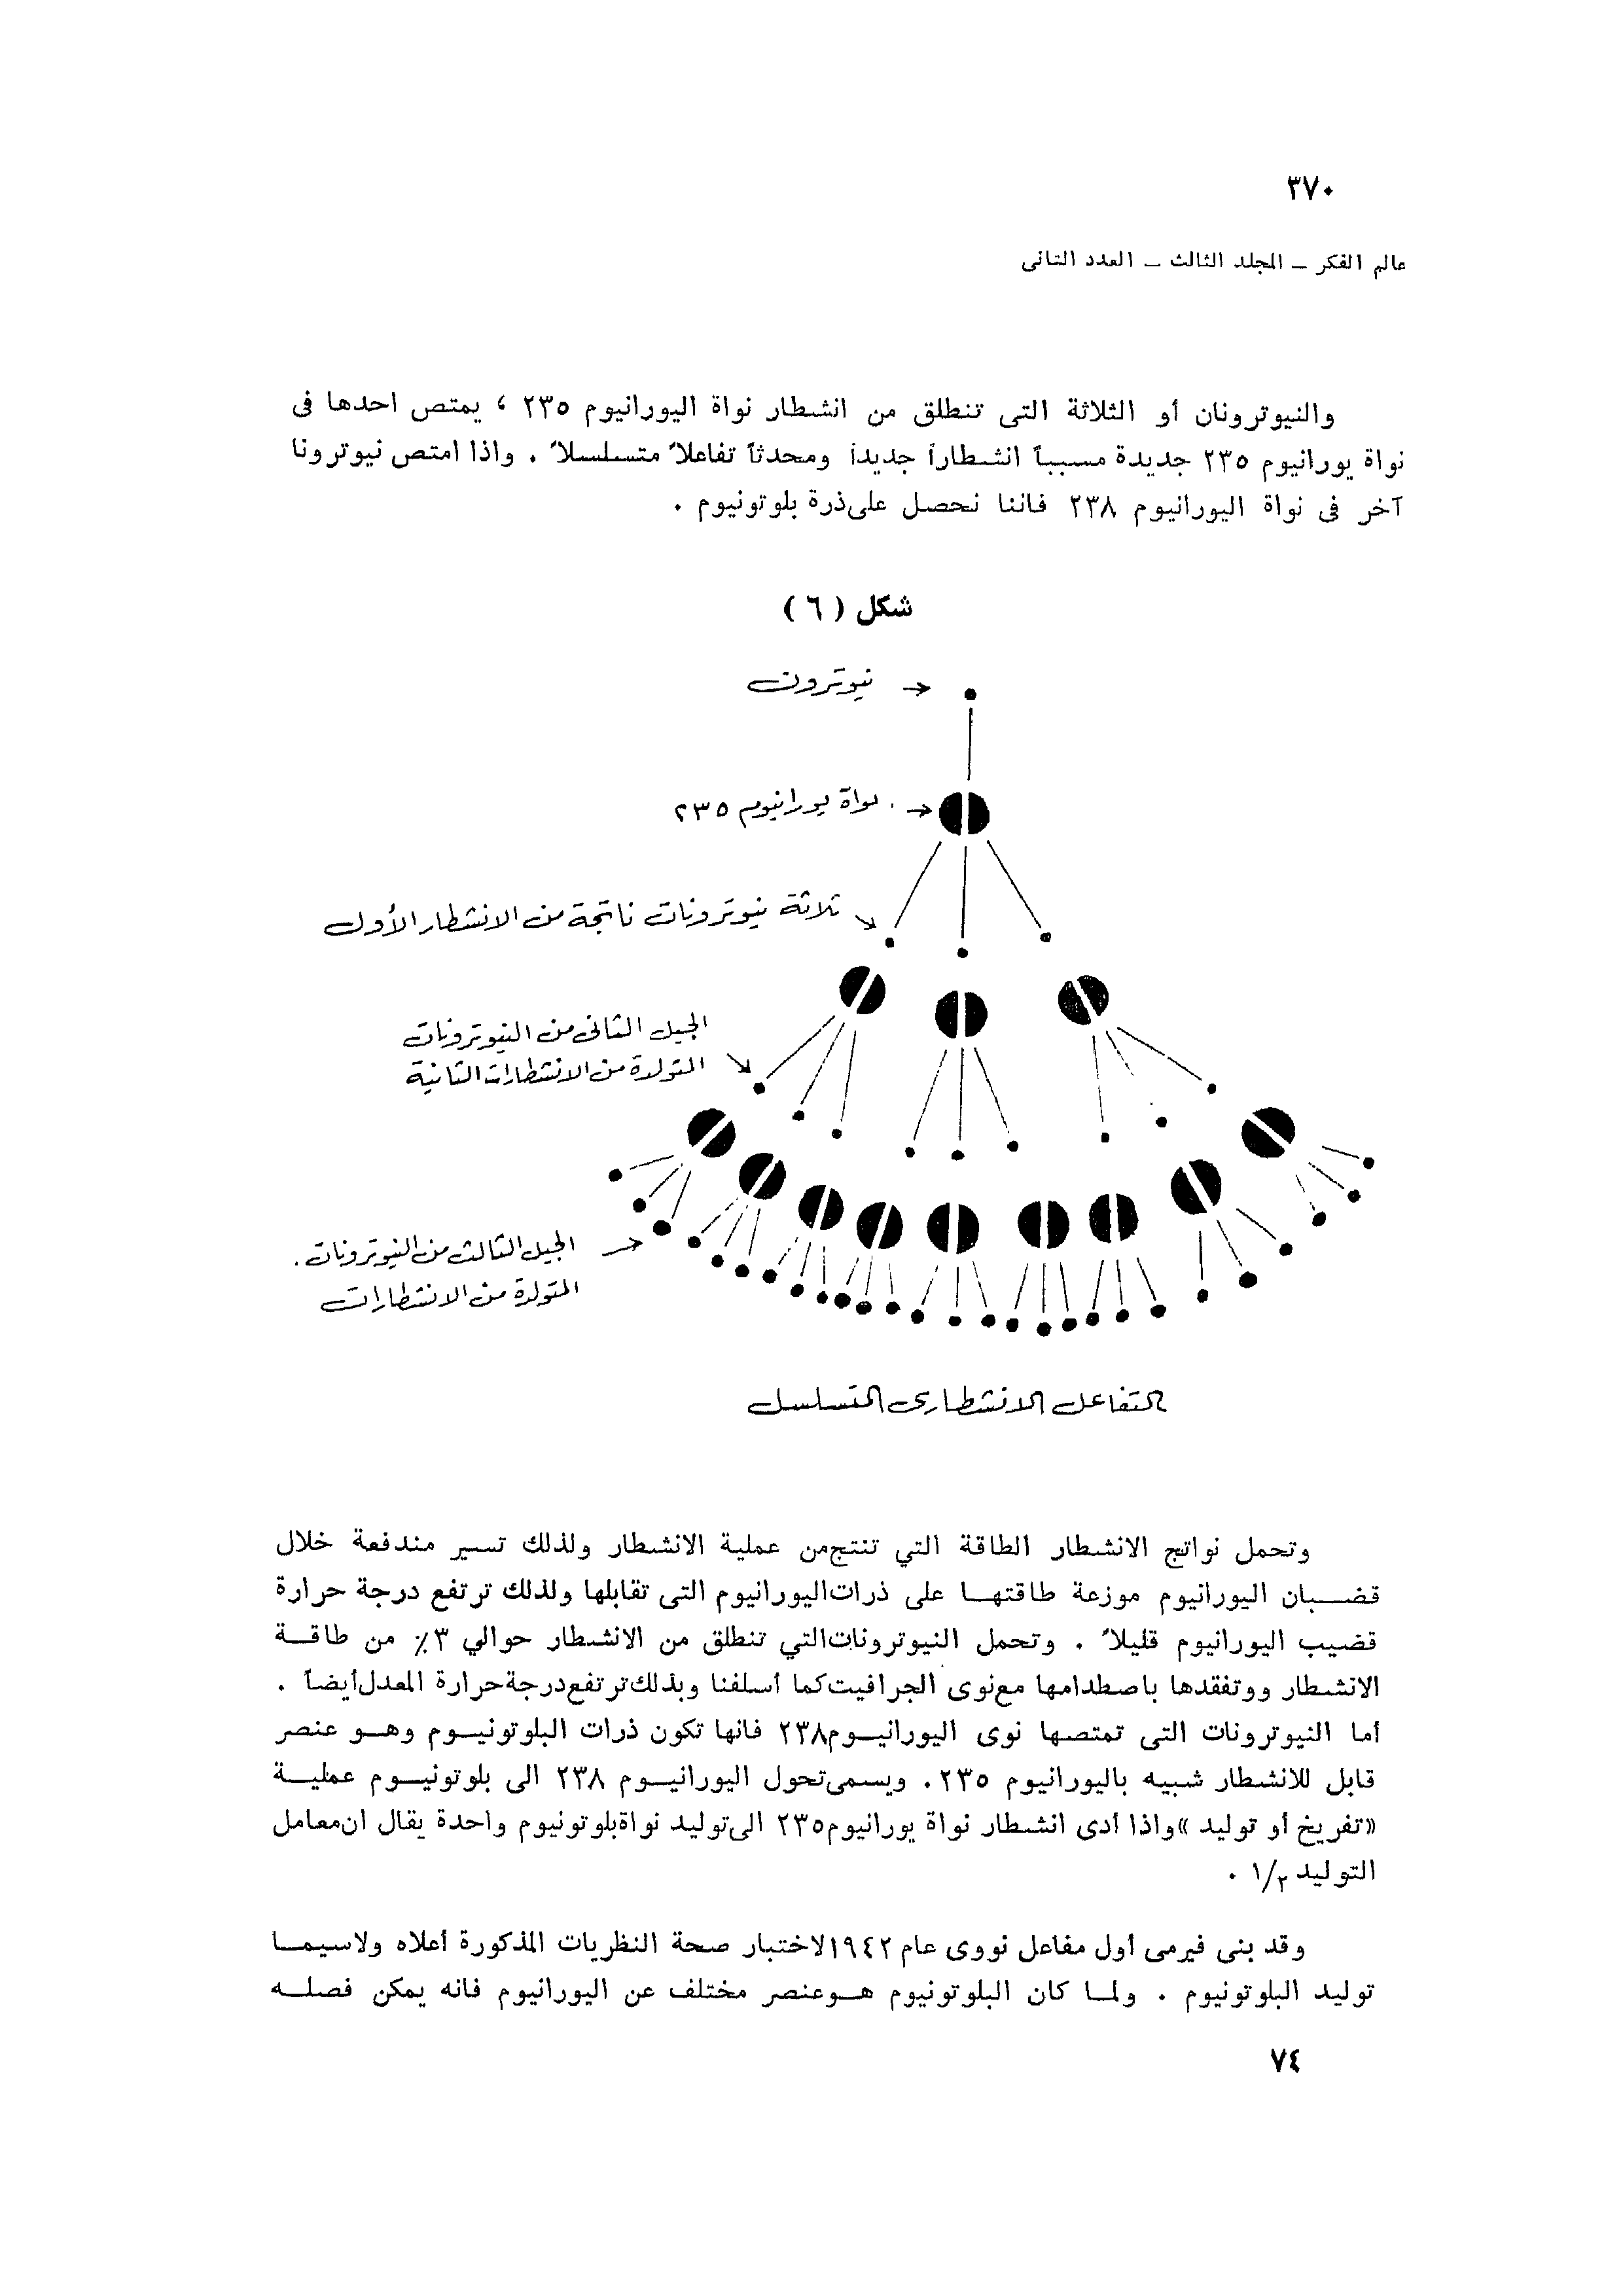 ٣٧٠
عالم الفكر – المجلد الثالث – العدد الثانى
والنيوترونان أو الثلاثة التى تنطلق من انشطار نواة اليورانيوم ٢٣٥ ، يمتص احدها فى
نواة يورانيوم ٢٣٥ جديدة مسبباً انشطاراً جديداً ومحدثاً تفاعلاً متسلسلاً . واذا امتص نيوترونا
آخر فى نواة اليورانيوم ٢٣٨ فاننا نحصل على ذرة بلوتونيوم .
شكل ( ٦ )
نيوترون →
نواة يورانيوم ٢٣٥ →
ثلاثة نيوترونات ناتجة من الانشطار الأول
الجيل الثانى من النيوترونات
المتولدة من الانشطارات الثانية
الجيل الثالث من النيوترونات .
المتولدة من الانشطارات
التفاعل الانشطارى المتسلسل
وتحمل نواتج الانشطار الطاقة التي تنتج من عملية الانشطار ولذلك تسير مندفعة خلال
قضبان اليورانيوم موزعة طاقتها على ذرات اليورانيوم التى تقابلها ولذلك ترتفع درجة حرارة
قضيب اليورانيوم قليلاً . وتحمل النيوترونات التي تنطلق من الانشطار حوالي ٣٪ من طاقة
الانشطار ووتفقدها باصطدامها مع نوى الجرافيت كما أسلفنا وبذلك ترتفع درجة حرارة المعدل أيضاً .
أما النيوترونات التى تمتصها نوى اليورانيوم ٢٣٨ فانها تكون ذرات البلوتونيوم وهو عنصر
قابل للانشطار شبيه باليورانيوم ٢٣٥ . ويسمى تحول اليورانيوم ٢٣٨ الى بلوتونيوم عملية
«تفريخ أو توليد » واذا أدى انشطار نواة يورانيوم ٢٣٥ الى توليد نواة بلوتونيوم واحدة يقال ان معامل
التوليد ١/٢ .
وقد بنى فيرمى أول مفاعل نووى عام ١٩٤٢ لاختبار صحة النظريات المذكورة أعلاه ولاسيما
توليد البلوتونيوم . ولما كان البلوتونيوم هو عنصر مختلف عن اليورانيوم فانه يمكن فصله
٧٤